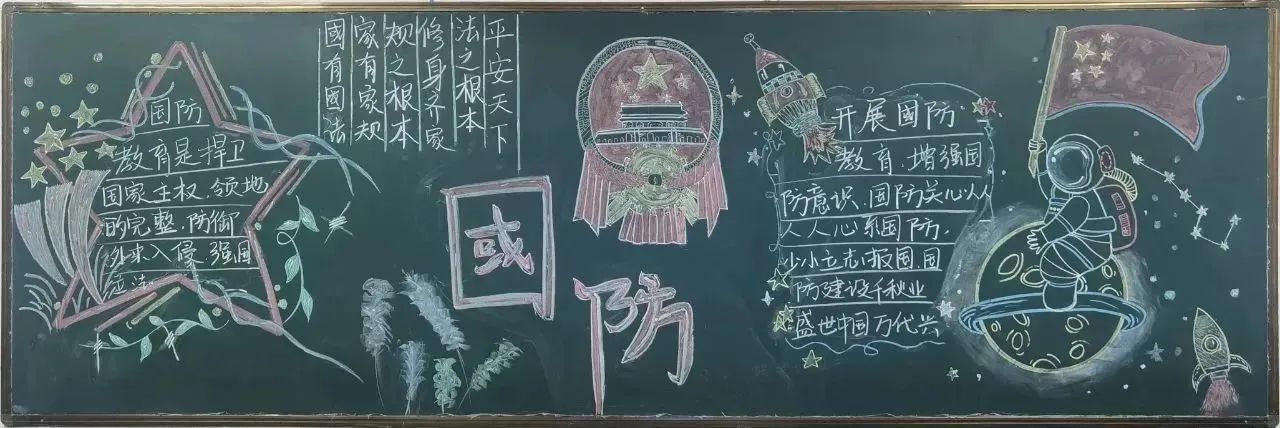 国防
教育是捍卫
国家主权、领地
的完整,防御
外来入侵,强国
國有國法
家有家规
规之根本
修身齐家
法之根本
平安天下
國
防
开展國防
教育,增强国
防意识,国防关心人人
人人心系国防,
少小立志报国,国
防建设千秋业
盛世中国万代兴